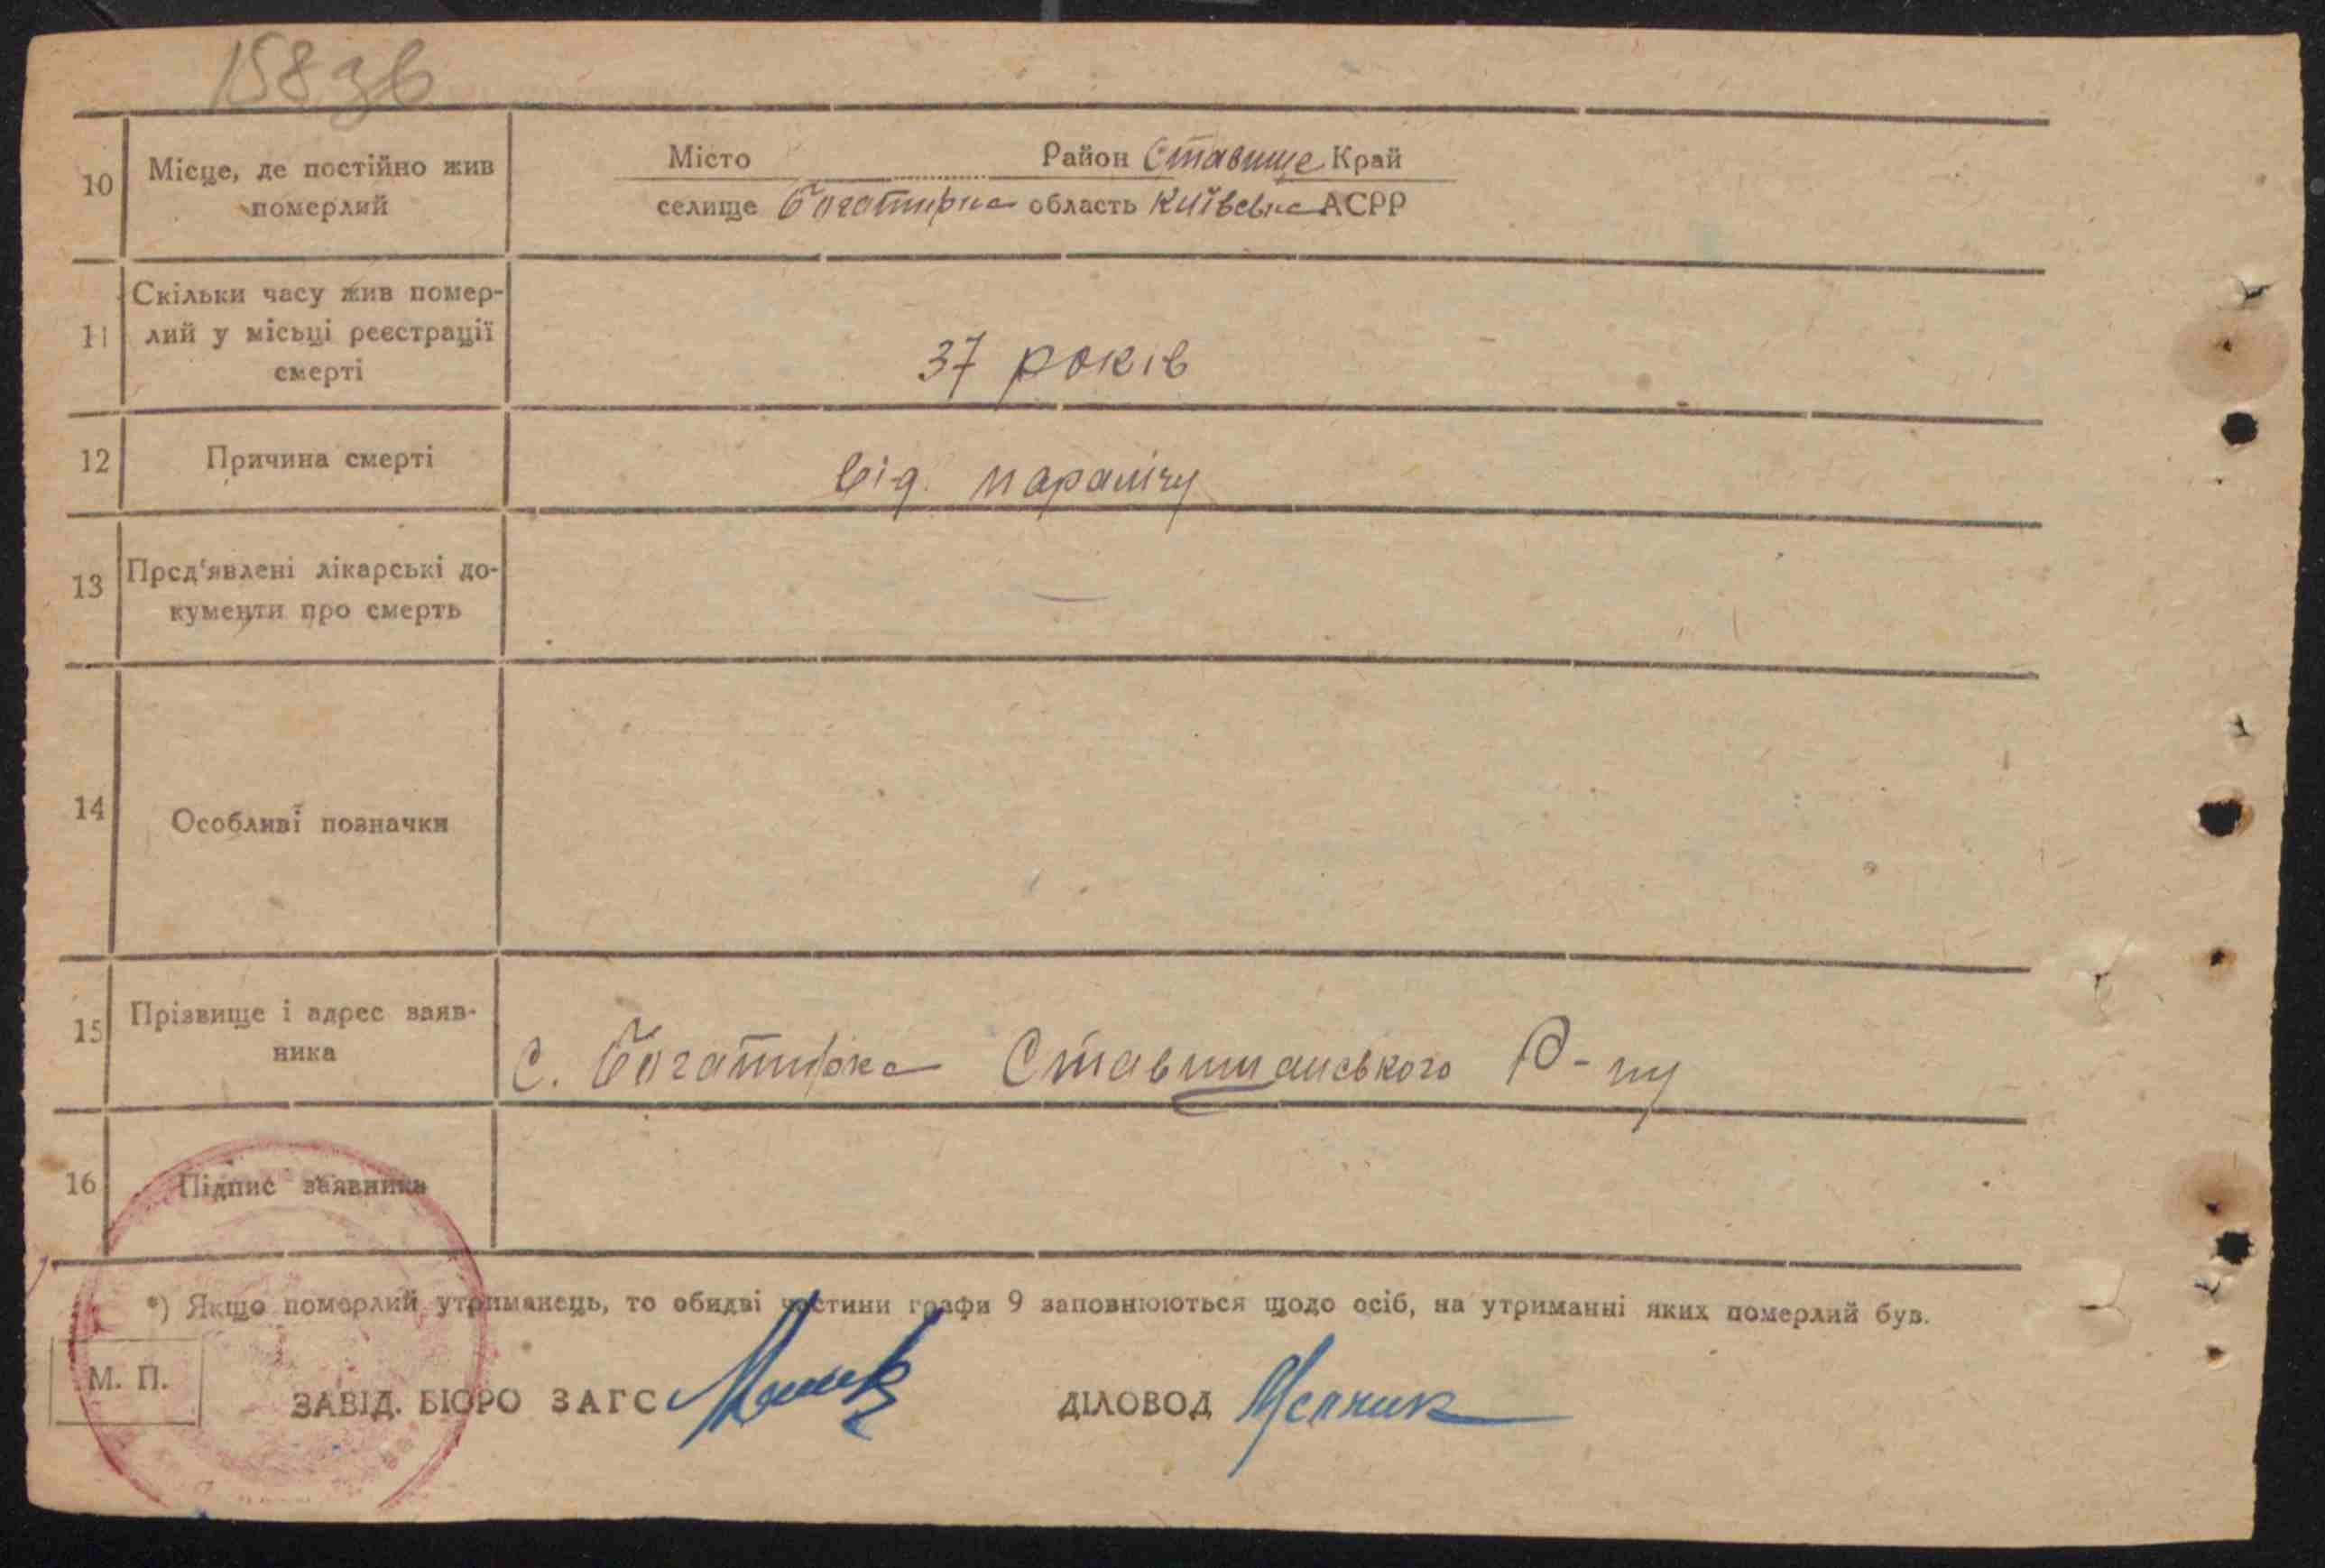 158 зв
10 Місце, де постійно жив померлий
Місто Район Ставище Край
селище Богатирка область Київська АСРР
11 Скільки часу жив помер-
лий у місьці реєстрації
смерті
37 років
12 Причина смерті
від. паралічу
13 Пред'явлені лікарські до-
кументи про смерть
—
14 Особливі позначки
15 Прізвище і адрес заяв-
ника
С. Богатирка Ставищанського Р-ну
16 Підпис заявника
*) Якщо померлий утриманець, то обидві частини графи 9 заповнюються щодо осіб, на утриманні яких померлий був.
М. П.
ЗАВІД. БЮРО ЗАГС ДІЛОВОД